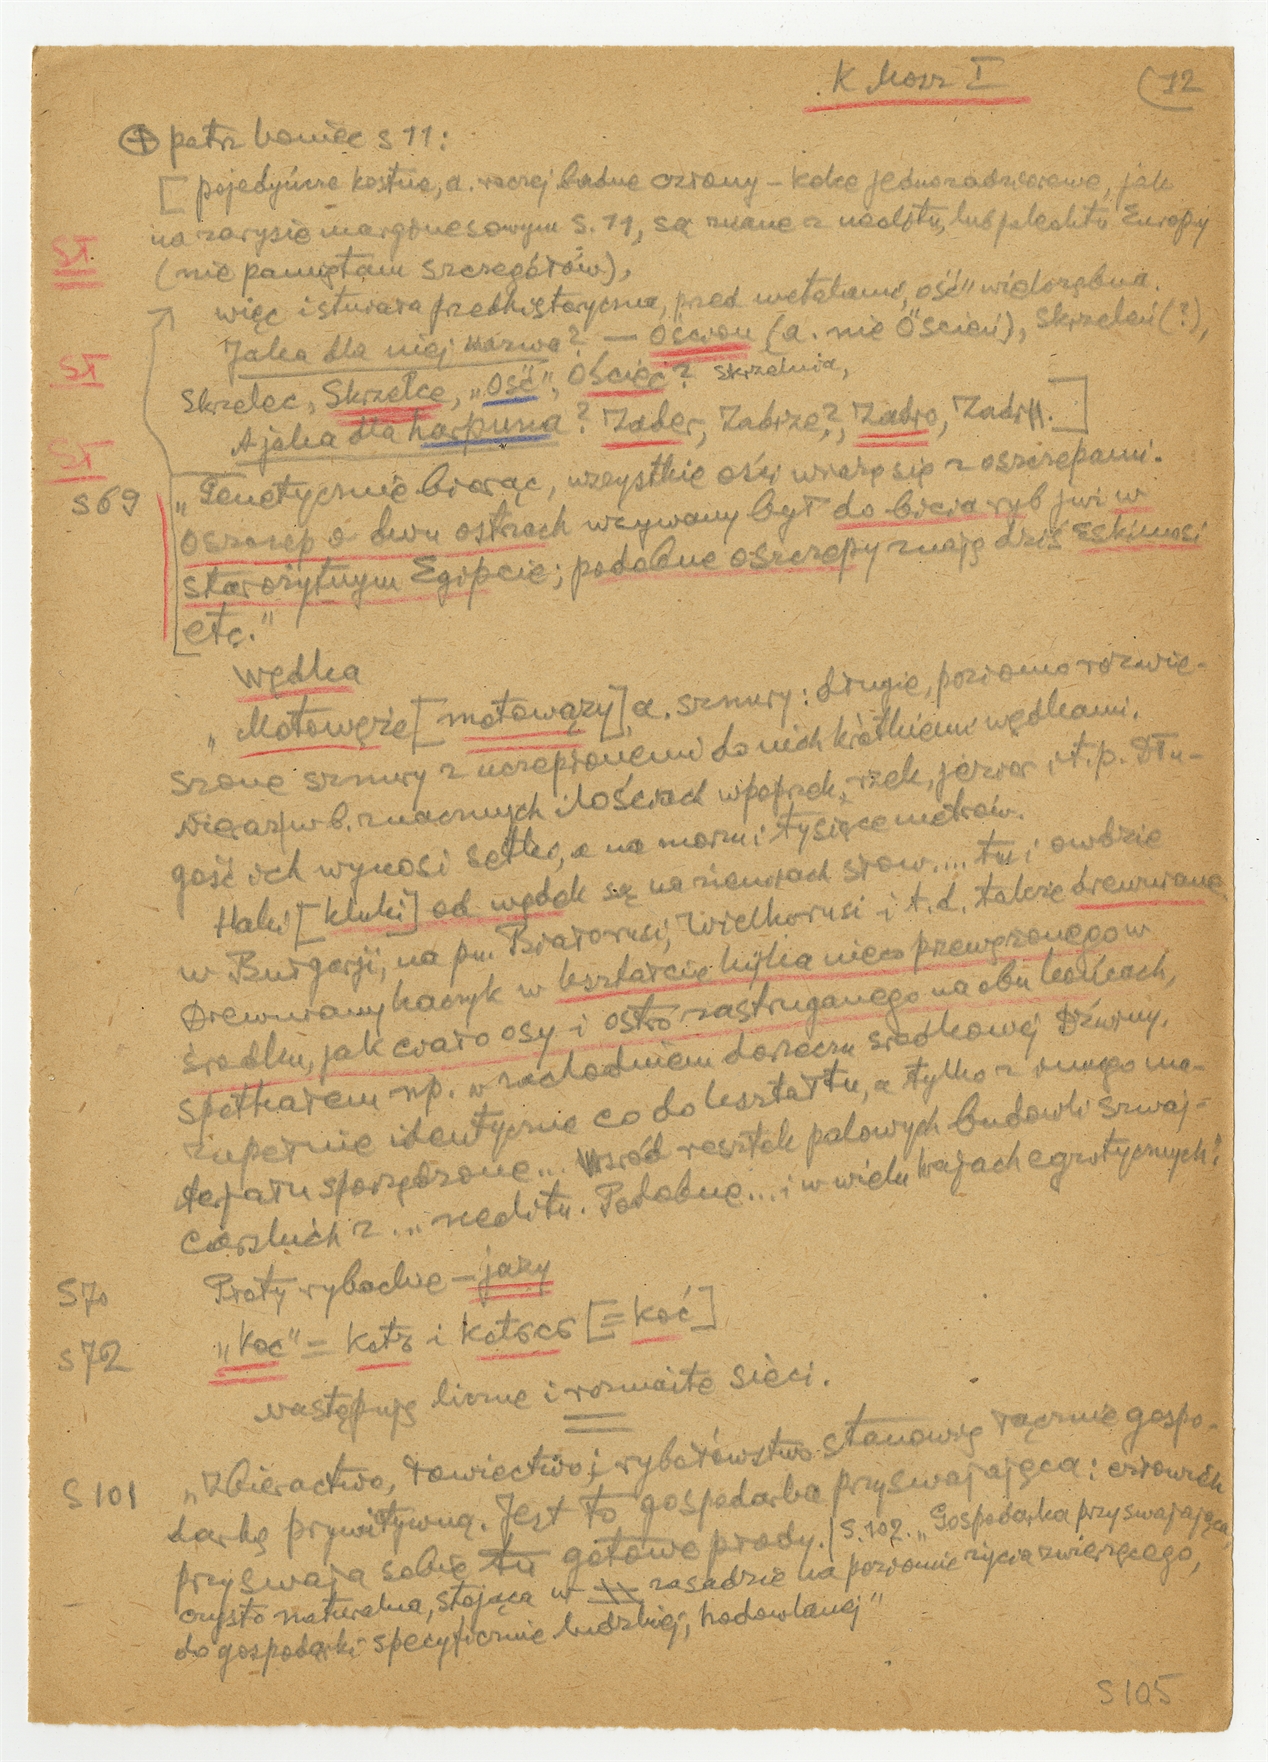 K Mosz I
(12
⊕ patrz koniec s 11:
[pojedyńcze kostne, a. raczej człony – kolce jednozadziorowe, jak
na zarysie marginesowym s. 11, są znane z neolitu, lub pleolitu Europy
St
(nie pamiętam szczegółów),
więc istniała przedhistoryczna, przed metalami, „ość" wielozębna.
Jaka dla niej nazwa? — Ościon (a. nie Oścień), skrzeleń(?),
St
Skrzelec, Skrzelce, „ość", Ościęć? skrzelnia,
A jaka dla harpuna? Zaber, Zabrze?, Zadro,
St
s 69
„Genetycznie biorąc, wszystkie ości wiążą się z oszczepami.
oszczep o dwu ostrzach używany był do bicia ryb już w
starożytnym Egipcie; podobne oszczepy znają dziś Eskimosi
etc."
Wędka
„Motowęże [motowązy], a. sznury: długie, poziomo rozwie-
szone sznury z uczepionemi do nich krótkiemi wędkami.
w b. znacznych ilościach wpoprzek rzek, jezior i t. p. Dłu-
gość ich wynosi setki, a na morzu i tysiące metrów.
Haki [kluki] od wędek są na ziemiach słow.... tu i owdzie
w Bułgarji, na pn. Białorusi, Wielkorusi i t. d. także drewniane
Drewniany haczyk w kształcie kijka nieco przewężonego w
środku, jak ciało osy i ostro zastruganego na obu końcach,
spotkałem np. w zachodniem dorzeczu środkowej Dźwiny.
Zupełnie identyczne co do kształtu, a tylko z innego ma-
terjału sporządzone... wśród resztek palowych budowli szwaj-
carskich z ... neolitu. Podobne... i w wielu krajach egzotycznych"
s 70
Płoty rybackie – jazy
s 72
„Koc" = kotъ i kotьcь [= koć]
następują liczne i rozmaite sieci.
s 101
„Zbieractwo, łowiectwo i rybołówstwo stanowią łącznie gospo-
darkę prymitywną. Jest to gospodarka przyswajająca: człowiek
przyswaja sobie tu gotowe płody. | s. 102. „Gospodarka przyswajająca,
czysto naturalna, stojąca w zasadzie na poziomie życia zwierzęcego,
do gospodarki specyficznie ludzkiej, hodowlanej"
s 105